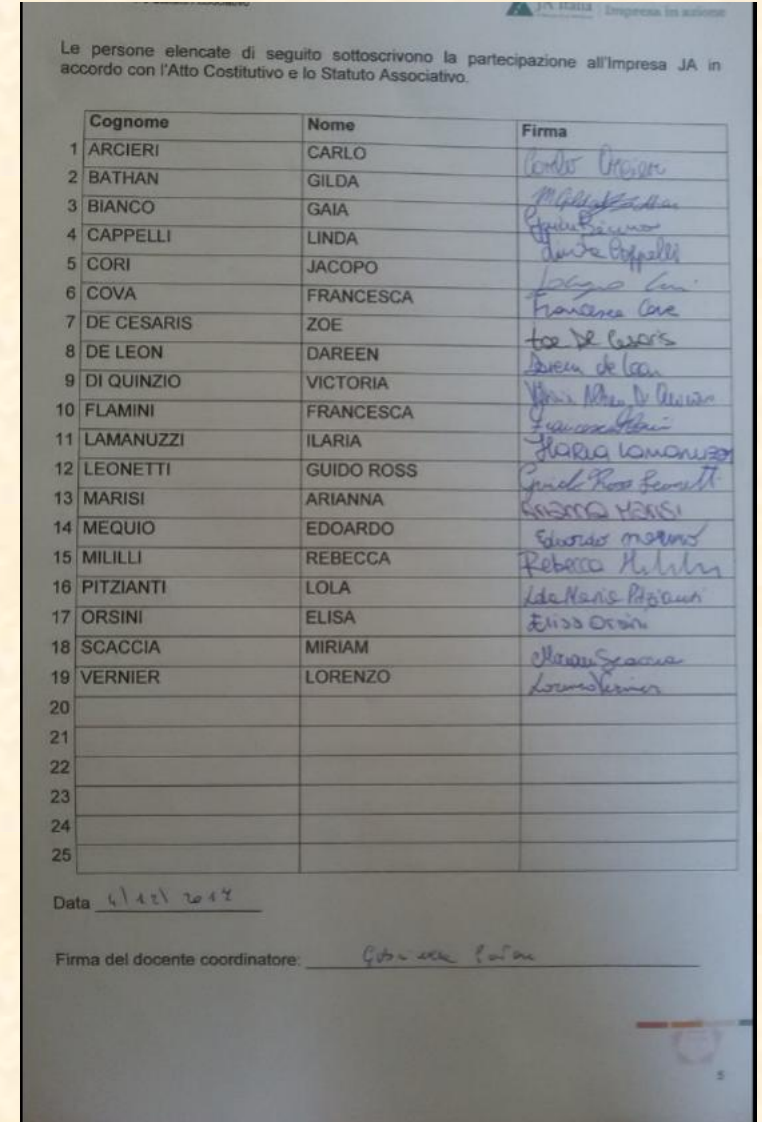 JA Italia Impresa in azione
Le persone elencate di seguito sottoscrivono la partecipazione all'Impresa JA in
accordo con l'Atto Costitutivo e lo Statuto Associativo.
Cognome Nome Firma
1 ARCIERI CARLO Carlo Arcieri
2 BATHAN GILDA
3 BIANCO GAIA Gaia Bianco
4 CAPPELLI LINDA Linda Cappelli
5 CORI JACOPO Jacopo Cori
6 COVA FRANCESCA Francesca Cova
7 DE CESARIS ZOE Zoe De Cesaris
8 DE LEON DAREEN Dareen de Leon
9 DI QUINZIO VICTORIA
10 FLAMINI FRANCESCA Francesca Flamini
11 LAMANUZZI ILARIA Ilaria Lamanuzzi
12 LEONETTI GUIDO ROSS Guido Ross Leonetti
13 MARISI ARIANNA Arianna Marisi
14 MEQUIO EDOARDO Edoardo
15 MILILLI REBECCA Rebecca Mililli
16 PITZIANTI LOLA Lola Maria Pitzianti
17 ORSINI ELISA Elisa Orsini
18 SCACCIA MIRIAM Miriam Scaccia
19 VERNIER LORENZO Lorenzo Vernier
20
21
22
23
24
25
Data 4/12/2017
Firma del docente coordinatore:
5